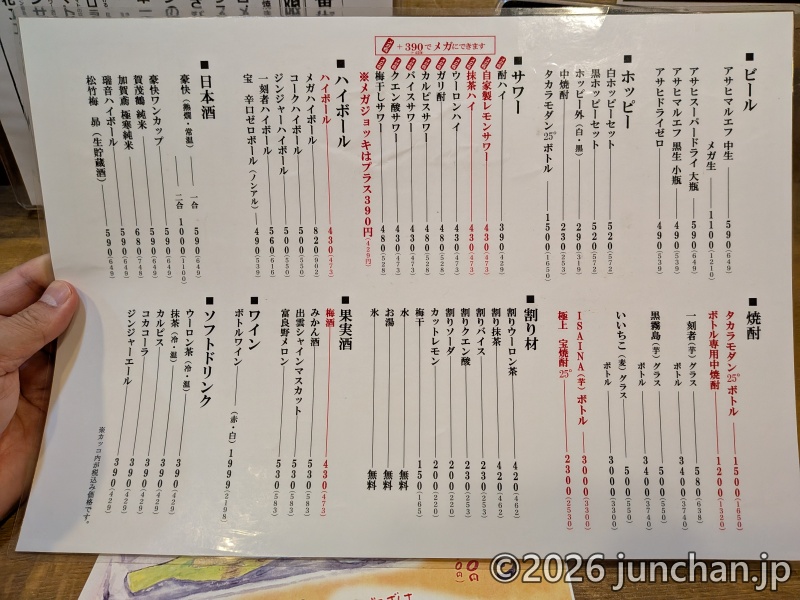 ■ビール
アサヒマルエフ 中生 590(649)
メガ生 1100(1210)
アサヒスーパードライ 大瓶 590(649)
アサヒマルエフ 黒生 小瓶 490(539)
アサヒドライゼロ 490(539)
■ホッピー
白ホッピーセット 520(572)
黒ホッピーセット 520(572)
ホッピー外(白・黒) 290(319)
中焼酎 230(253)
タカラモダン25°ボトル 1500(1650)
+390でメガにできます
■サワー
酎ハイ 390(429)
自家製レモンサワー 430(473)
抹茶ハイ 430(473)
ウーロンハイ 430(473)
ガリ酎 480(528)
カルピスサワー 480(528)
バイスサワー 430(473)
クエン酸サワー 430(473)
梅干しサワー 480(528)
※メガジョッキはプラス390円(429円)
■ハイボール
ハイボール 430(473)
メガハイボール 820(902)
コークハイボール 500(550)
ジンジャーハイボール 500(550)
一刻者ハイボール 560(616)
宝 辛口ゼロボール(ノンアル) 490(539)
■日本酒
豪快(熱燗・常温) 一合 590(649)
二合 1000(1100)
豪快ワンカップ 590(649)
賀茂鶴 純米 590(649)
加賀鳶 極寒純米 680(748)
瑞音ハイボール 590(649)
松竹梅 昴(生貯蔵酒) 590(649)
■焼酎
タカラモダン25°ボトル 1500(1650)
ボトル専用中焼酎 1200(1320)
一刻者(芋)グラス 580(638)
ボトル 3400(3740)
黒霧島(芋)グラス 500(550)
ボトル 3400(3740)
いいちこ(麦)グラス 500(550)
ボトル 3000(3300)
ISAINA(芋)ボトル 3000(3300)
極上 宝焼酎25° 2300(2530)
■割り材
割りウーロン茶 420(462)
割り抹茶 420(462)
割りバイス 230(253)
割りクエン酸 230(253)
割りソーダ 200(220)
カットレモン 200(220)
梅干 150(165)
水 無料
お湯 無料
氷 無料
■果実酒
梅酒 430(473)
みかん酒 530(583)
出雲シャインマスカット 530(583)
富良野メロン 530(583)
■ワイン
ボトルワイン (赤・白) 1999(2198)
■ソフトドリンク
ウーロン茶(冷・温) 390(429)
抹茶(冷・温) 390(429)
カルピス 390(429)
コカコーラ 390(429)
ジンジャーエール 390(429)
※カッコ内が税込み価格です。
©2026 junchan.jp